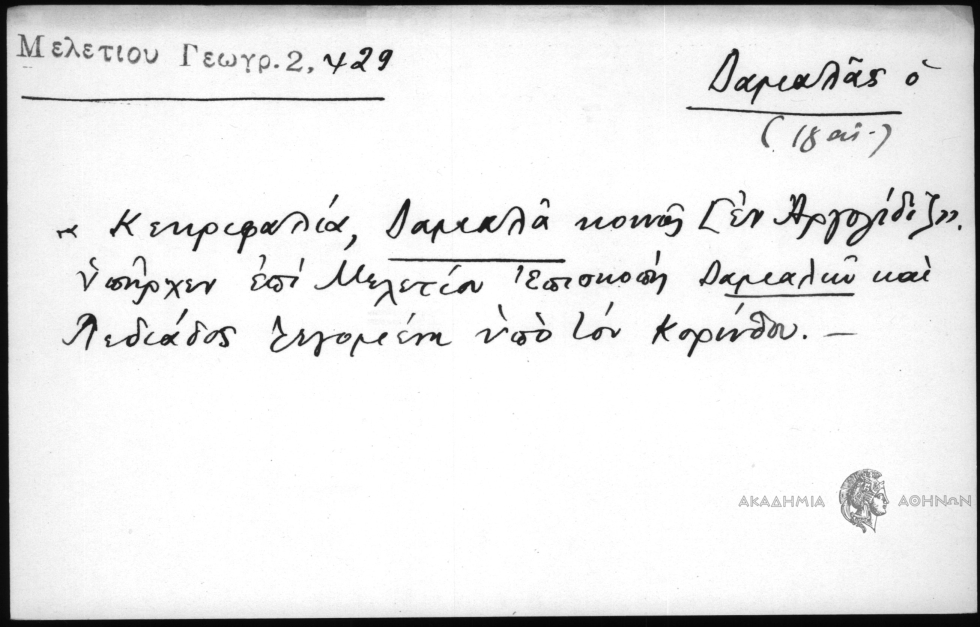 Μελετιου Γεωγρ. 2, 429
Δαμαλᾶς ὁ
(18 αἰ.)
« Κεκρυφαλία, Δαμαλᾶ κοινῶς [ἐν Ἀργολίδι]».
Ὑπῆρχεν ἐπὶ Μελετίου Ἐπισκοπὴ Δαμαλῶν καὶ
Πεδιάδος λεγομένη ὑπὸ τὸν Κορίνθου. —
ΑΚΑΔΗΜΙΑ ΑΘΗΝΩΝ